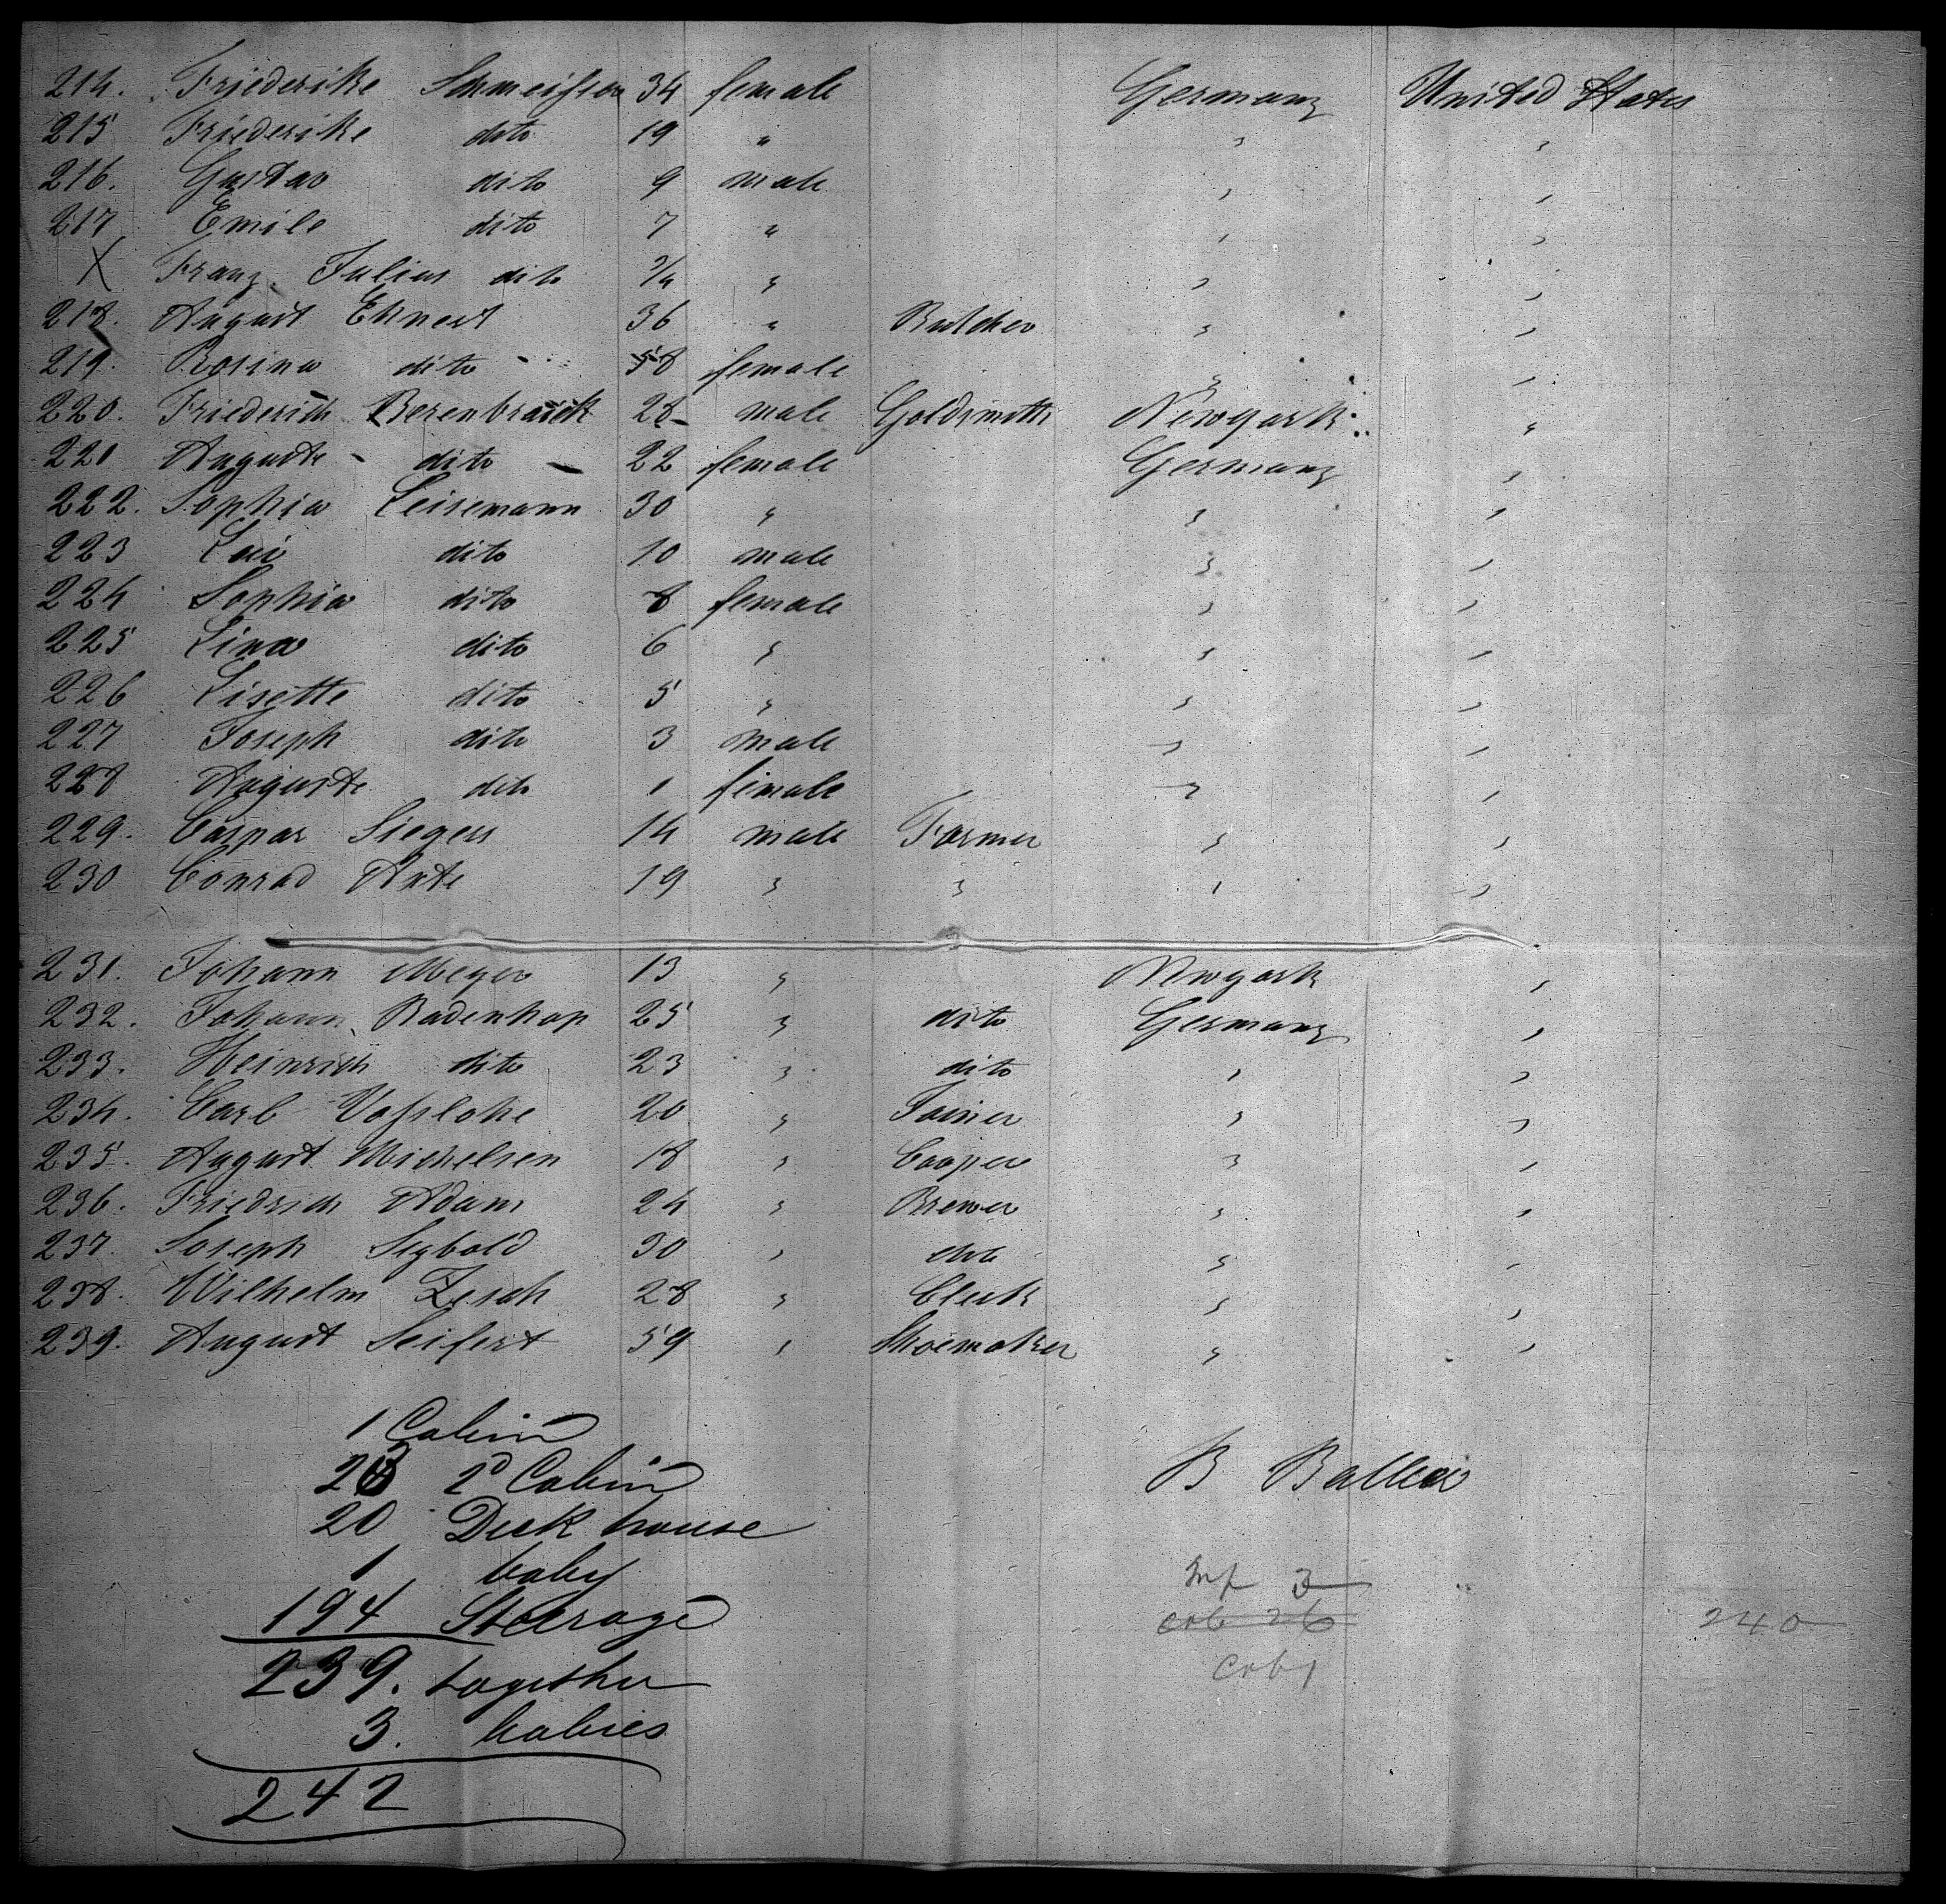 214. Friederike Schmeisser 34 female Germany United States
215 Friederike dito 19 " " "
216. Gustav dito 9 male " "
217 Emile dito 7 " " "
X Franz Julius dito 3/4 " " "
218. August Ehnert 36 " Butcher " "
219. Rosina dito 58 female " "
220. Friederich Berenbraick 28 male Goldsmith Newyork "
221 Auguste dito 22 female Germany "
222. Sophia Leisemann 30 " " "
223 Lui dito 10 male " "
224 Sophia dito 8 female " "
225 Lina dito 6 " " "
226 Lisette dito 5 " " "
227 Joseph dito 3 male " "
228 Auguste dito 1 female " "
229. Caspar Siegers 14 male Farmer " "
230 Conrad Ante 19 " " " "
231. Johann Meyer 13 " Newyork "
232. Johann Badenhop 25 " dito Germany "
233. Heinrich dito 23 " dito " "
234. Carl Vosslohe 20 " Joiner " "
235. August Michelsen 18 " Cooper " "
236. Friedrich Adam 24 " Brewer " "
237. Joseph Sigbold 30 " dito " "
238. Wilhelm Zesch 28 " Clerk " "
239. August Seifert 59 " Shoemaker " "
1 Cabin
23 2d Cabin
B Baller
20 Deck house
1 baby
Inf 3
194 Steerage
cab 26
240
239. together
cab 1
3. babies
242